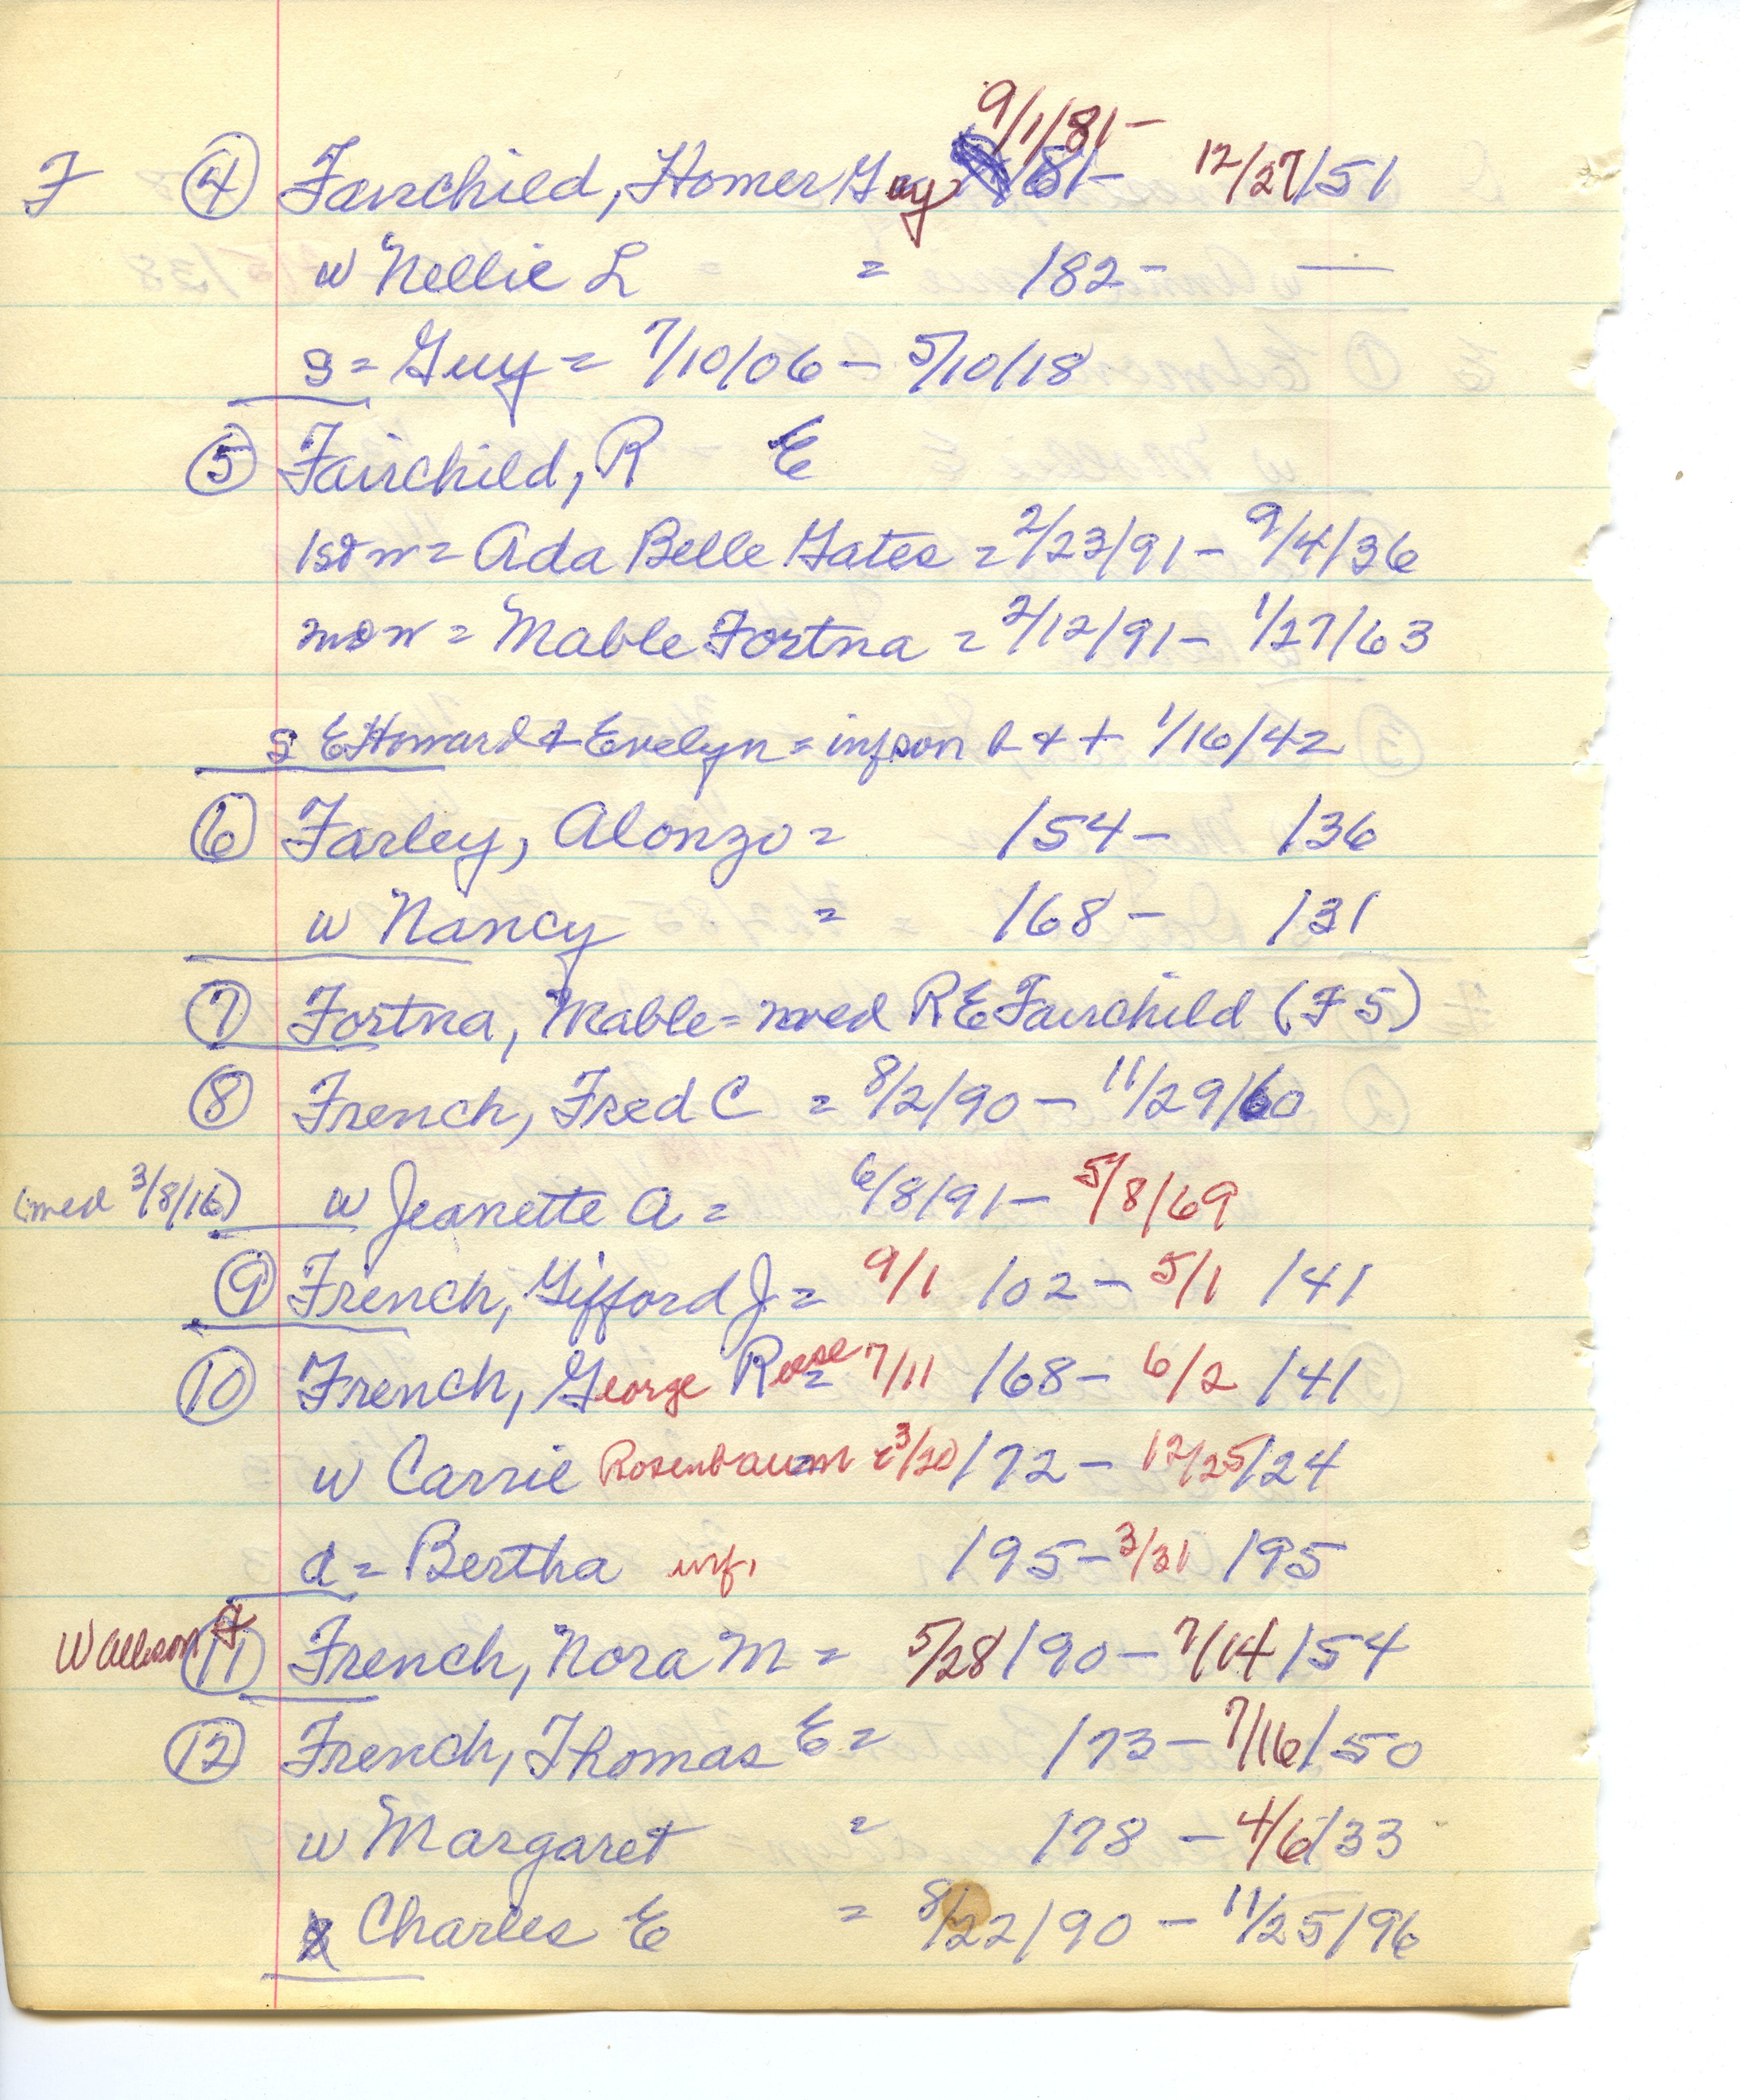 9/1/81-
F ④ Fairchild, Homer Guy /81- 12/27/51
w Nellie L = /82- —
s = Guy = 7/10/06 - 5/10/18
⑤ Fairchild, R E
1st w = Ada Belle Gates = 2/23/91 - 9/4/36
w = Mable Fortna = 2/12/91 - 1/27/63
s E Howard & Evelyn = inf son 1/16/42
⑥ Farley, Alonzo = /54- /36
w Nancy = /68- /31
⑦ Fortna, Mable = med R E Fairchild (F5)
⑧ French, Fred C = 8/2/90 - 11/29/60
(med 3/8/16) w Jeanette A = 6/8/91 - 5/8/69
⑨ French, Gifford J = 9/1 /02 - 5/1 /41
⑩ French, George Reese = 7/11 /68 - 6/2 /41
w Carrie Rosenbaum = 3/20/72 - 12/25/24
d = Bertha inf. /95 - 3/31 /95
⑪ French, Nora M = 5/28/90 - 7/14/54
⑫ French, Thomas E = /73 - 7/16/50
w Margaret = /78 - 4/6/33
Charles E = 8/22/90 - 11/25/96